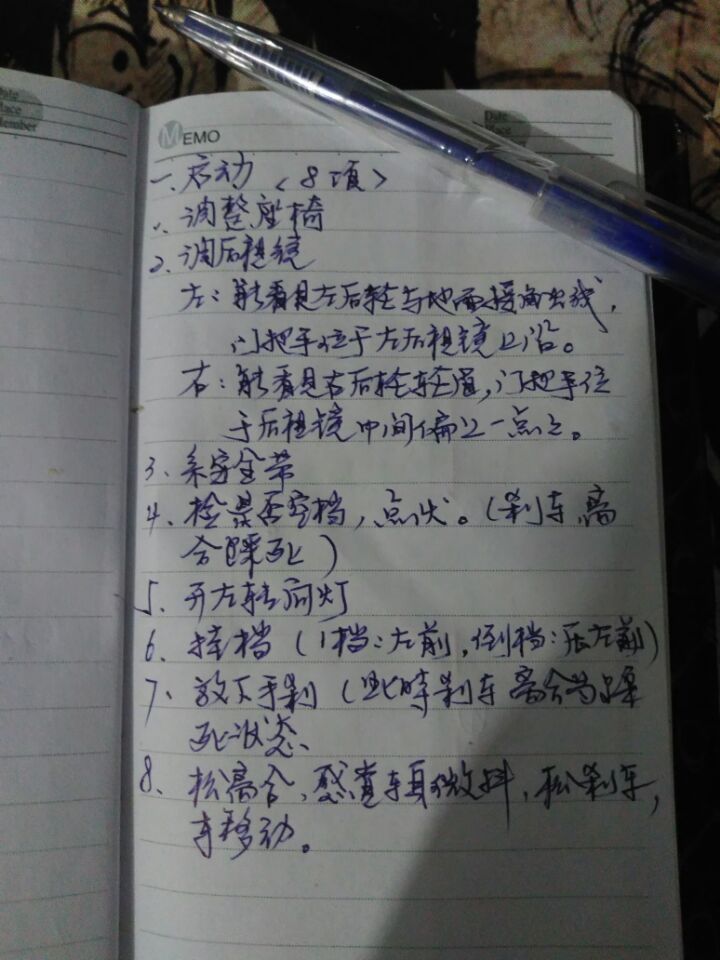 Date
Place
Number
MEMO
Date
Place
一、启动〈8项〉
1、调整座椅
2、调后视镜
左：能看见左后轮与地面接角出线，
门把手位于左后视镜上沿。
右：能看见右后轮轮眉，门把手位
于后视镜中间偏上一点上。
3、系安全带
4、检是否空档，点火。（刹车，离
合踩死）
5、开左转向灯
6、挂档（1档：左前，倒档：压左前）
7、放下手刹（此时刹车离合为踩
死状态
8、松离合，感觉车身微抖，松刹车，
车移动。